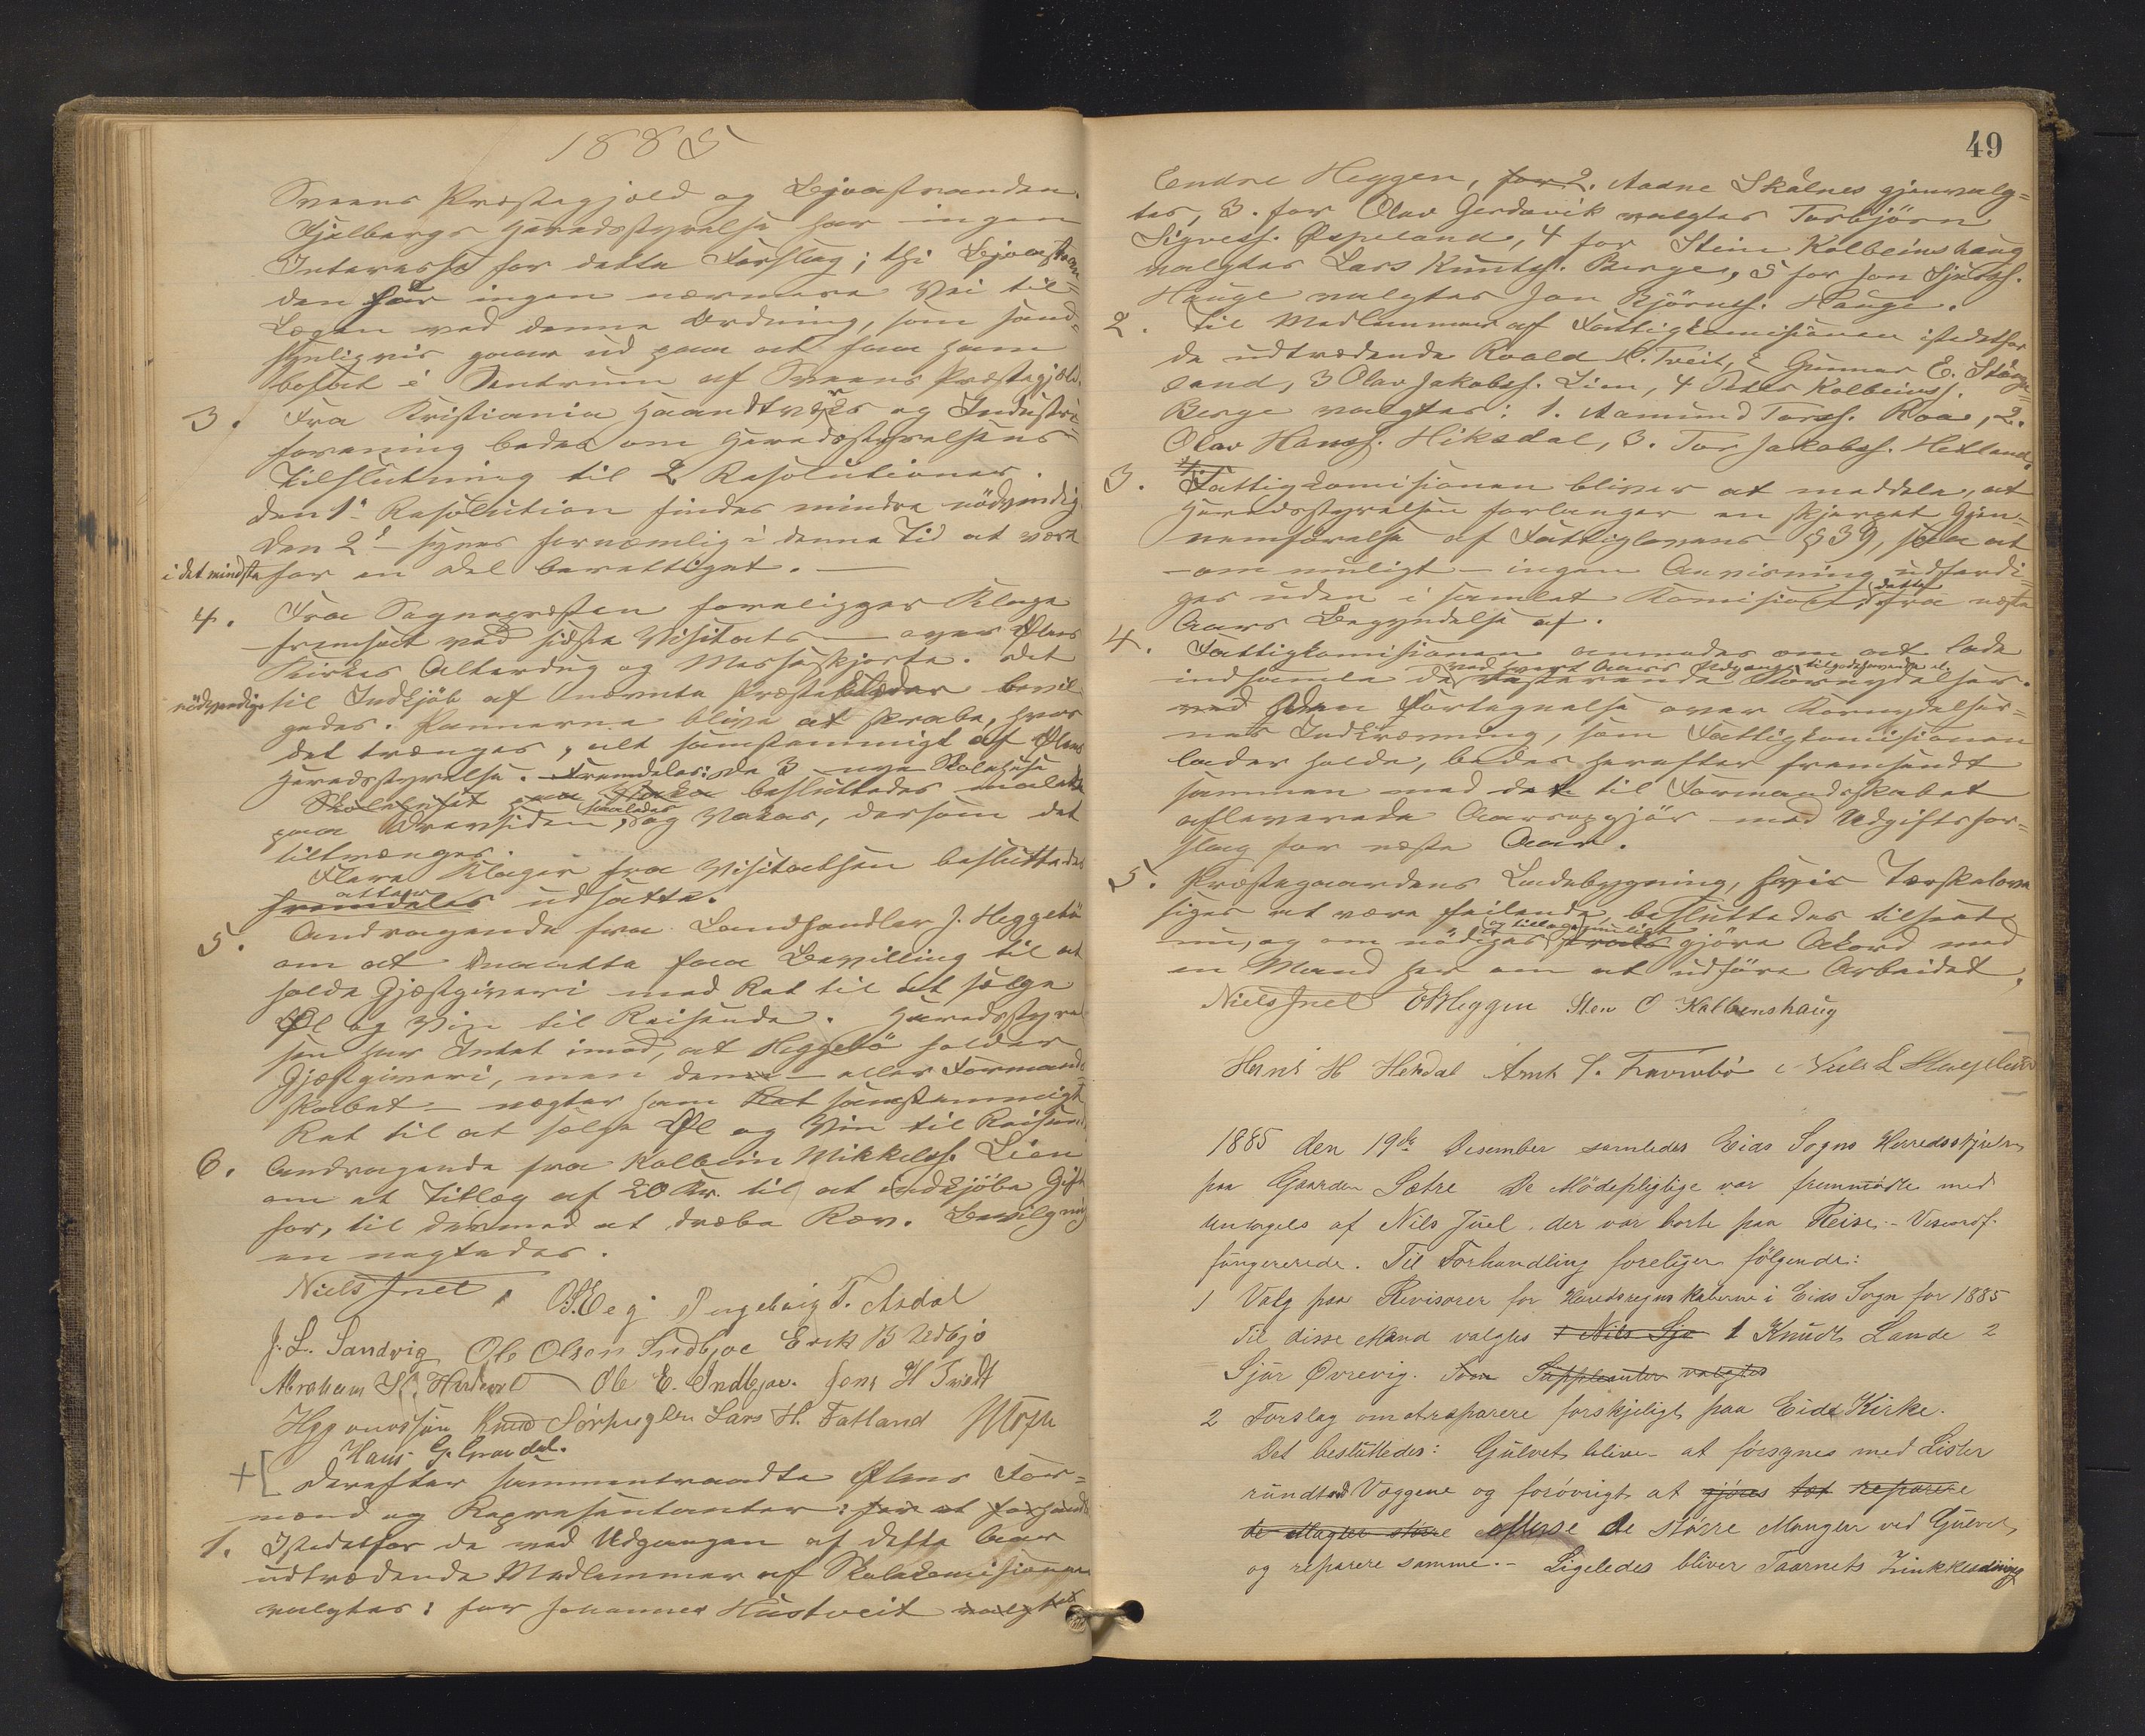 1885
Sveens Præstegjeld og Bjoastranden.
Fjelbergs Heredsstyrelse har ingen
Interesse for dette Forslag; thi Bjoastran=
den får ingen nærmere Vei til
Lægen ved denne Ordning, som sand=
synligvis gaar ud paa at faa ham
bosat i Sentrum af Sveens Præstegjeld.
3. Fra Kristiania Haandtverks og Industri=
forening bedes om Heredsstyrelsens
Tilslutning til 2 Resolutioner.
Den 1ᵉ Resolution findes mindre nödvendig.
Den 2ᵉ – synes fornæmlig i denne Tid at være
i det mindste for en Del berettiget. —
4. Fra Sognepræsten foreligger Klage
fremsat ved sidste Visitats — over Ølens
Kirkes Alterdug og Messeskjorte. Det
nödvendige til Indkjöb af nævnte Præsteklæder bevil=
gedes. Pannerne blive at skrabe, hvor
det trænges, alt samstemmigt af Ølens
Heredsstyrelse. Fremdeles: De 3 nye Skolehuse
Skolehuset paa besluttedes malede
paa Ydersiden, saaledes og Nakas, dersom det
tiltrænges.
Flere Klager fra Visitatsen besluttedes
fremdeles atter udsatte.
5. Andragende fra Landhandler J. Heggebö
om at maatte faa Bevilling til at
holde Gjæstgiveri med Ret til at sælge
Øl og Vin til Reisende. Heredsstyrel
sen har Intet imod, at Heggebö holder
Gjæstgiveri, men denne – eller Formand=
skabet – nægter ham Ret samstemmigt
Ret til at sælge Øl og Vin til Reisende.
6. Andragende fra Kolbein Mikkelss. Lien
om et Tillæg af 20 Kr. til at indkjöbe Gift
for, til dermed at dræbe Ræv. Bevilgning
en nægtedes.
Niels Juel, Ingebrig T. Asdal
J. L. Sandvig Ole Olsen Indbjoe Erik B Udbjo
Abraham Ole E. Indbjoe. Jens H Tvedt
Knud Lars H. Fatland
Hans G. Grandal.
+[ Derefter sammentraadte Ølens For=
mænd og Repræsentanter: for at forhandle
1. Istedetfor de ved Udgangen af dette Aar
udtrædende Medlemmer af Skolekomisionen
valgtes: for Johannes Hustveit valgtes
49
Endre Heggen, for 2. Aadne Skålnes gjenvalg=
tes, 3. for Olav Gerdevik valgtes Torbjörn
Sigvess. Øspeland, 4 for Stein Kolbeinshaug
valgtes Lars Kuntss. Berge, 5 for Jon Sjurss.
Hauge valgtes Jon Björnss. Hauge.
2. Til Medlemmer af Fattigkomisionen istedetfor
de udtrædende Roald K. Tveit, 2 Gunnar E. Stånge=
land, 3 Olav Jakobss. Lien, 4 Peder Kolbeinss.
Berge valgtes: 1. Aamund Torss. Roa, 2.
Olav Hanss. Hiksdal, 3. Tor Jakobss. Hetland.
3. Fattigkomisionen bliver at meddele, at
Heredsstyrelsen forlanger en skjerpet Gjen=
nemförelse af Fattiglovens § 39, saa at
– om muligt – ingen Anvisning udferdi=
ges uden i samlet Komision, dette fra næste
Aars Begyndelse af.
4. Fattigkomisionen anmodes om at lade
indsamle de ved hvert Aars Udgang tilgodehavende el. resterende Kornydelser.
ved Den Fortegnelse over Kornydelser=
nes Indkrævning, som Fattigkomisionen
lader holde, bedes herefter fremsendt
sammen med det til Formandsskabet
afleverede Aarsopgjör med Udgiftsfor=
slag for næste Aar.
5. Præstegaardens Ladebygning, hvis Tærskelove
siges at være feilende, besluttedes tilseet
nu, og om nödiges og tillagt muligt gjöre Akord med
en Mand her om at udföre Arbeidet.
Niels Juel EKHeggen Sten O Kolbenshaug
Hans H Heksdal Amk T. Travnbö Niels L Stangeland
1885 den 19de Desember samledes Eids Sogns Herredsstyrelse
paa Gaarden Sætre De Mödepligtige var fremmödte med
Untagels af Nils Juel, der var borte paa Reise. – Viseordf.
fungererede. Til Forhandling foreliger fölgende:
1 Valg paa Revisorer for Herredsregnskaberne i Eids Sogn for 1885
Til disse Mænd valgtes 1 Nils Sjo 1 Knudt Lande 2
Sjur Øvrevig. Som Suppleanter valgtes
2 Forslag om at reparere forskjeligt paa Eids Kirke.
Det besluttedes: Gulvet bliver at försynes med Lister
rundt ved Væggene og forövrigt at gjöres tæt reparere
de Mangler större efterse de större Mangler ved Gulvet,
og reparere samme. – Ligeledes bliver Taarnets Zinkklædning